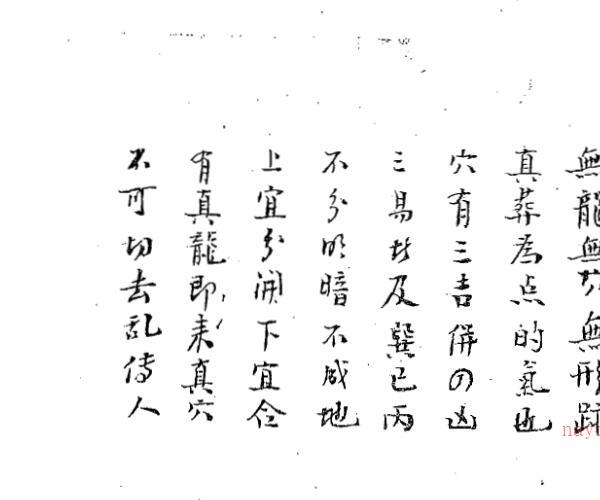 無龍無穴無形跡
真葬為点的氣
穴有三吉併四凶
三易於及巽巳丙
不分明暗不成地
上宜分開下宜合
有真龍即来真穴
不可切去乱傳人